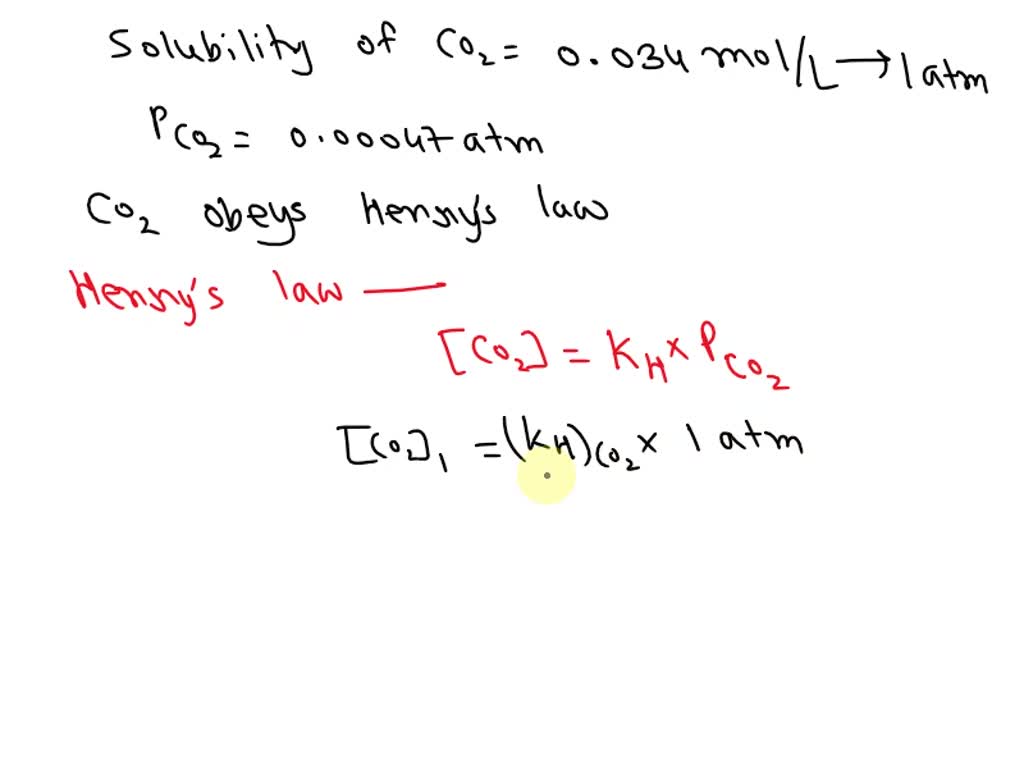 Solubility of CO₂ = 0.034 mol/L → 1 atm
P_CO₂ = 0.00047 atm
CO₂ obeys Henry's law
Henry's law —
[CO₂] = K_H × P_CO₂
[CO₂]₁ = (K_H)_CO₂ × 1 atm